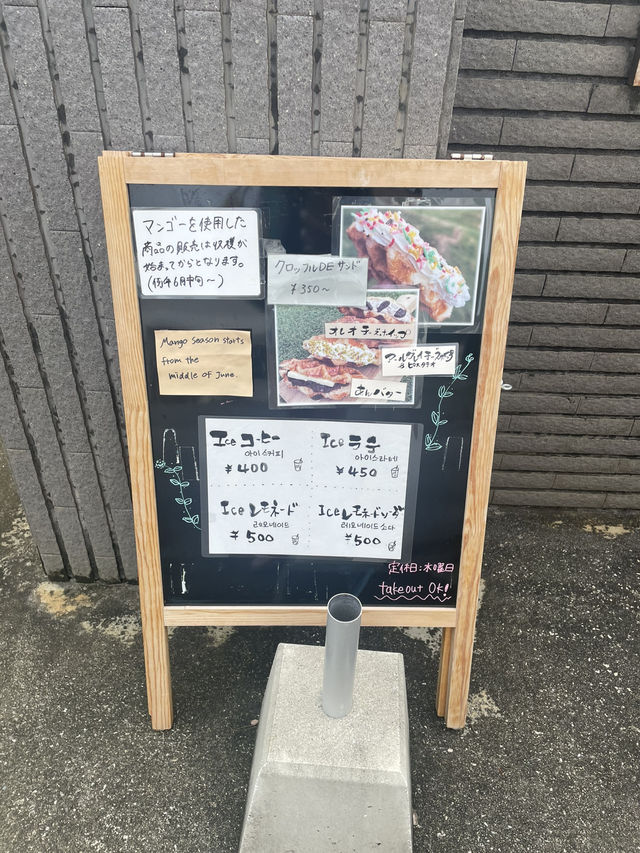 マンゴーを使用した
商品の販売は収穫が
始まってからとなります。
(例年6月中旬〜)
クロッフルDEサンド
¥350〜
オレオチーズホイップ
あんバター
Mango season starts
from the
middle of June.
Ice コーヒー
아이스커피
¥400
Ice ラテ
아이스라떼
¥450
Ice レモネード
레모네이드
¥500
Ice レモネードソーダ
레모네이드소다
¥500
定休日:水曜日
takeout OK!